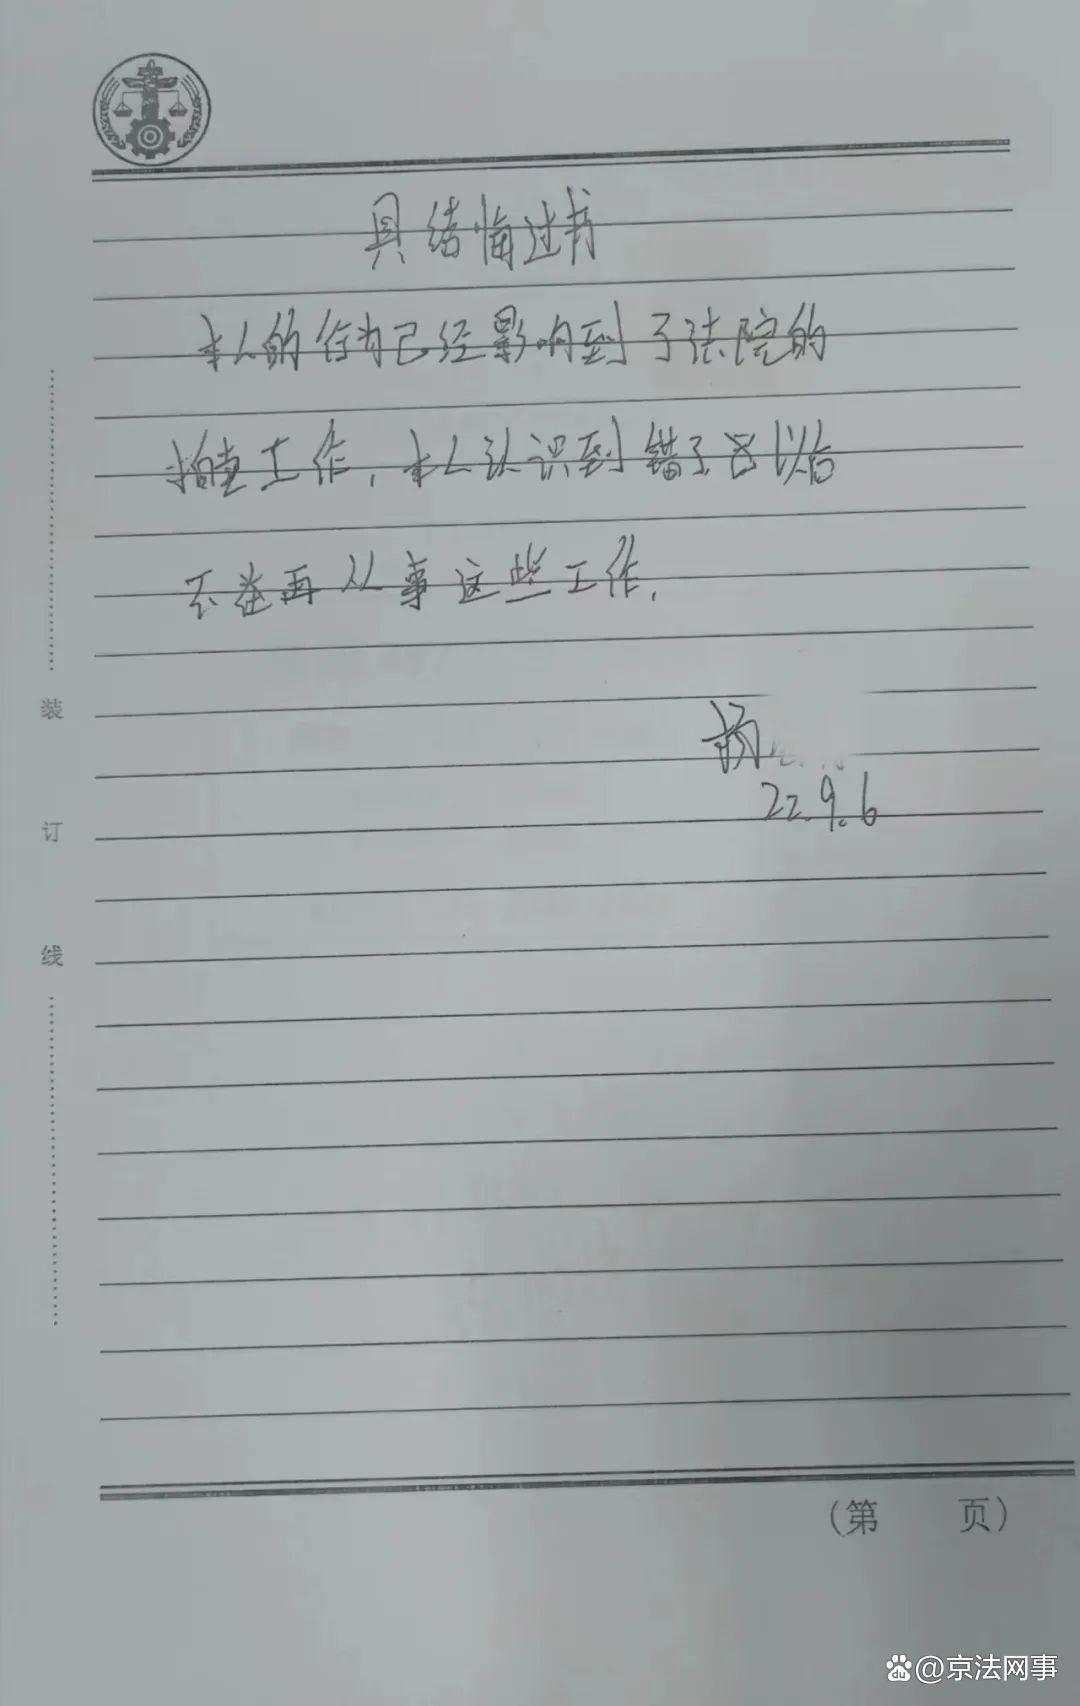 具结悔过书
本人的行为已经影响到了法院的
拍卖工作，本人认识到错了 以后
不在再从事这些工作.
杨
22.9.6
装
订
线
（第 页）
du @京法网事